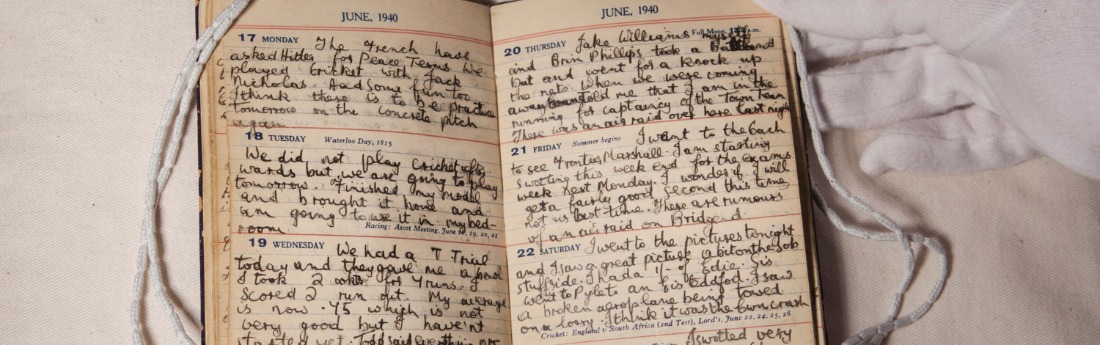 JUNE, 1940
17 MONDAY The French have
asked Hitler for Peace Terms. We
played cricket with Jack
Nicholas. Had some fun too.
I think there is to be practice
tomorrow on the concrete pitch
again
18 TUESDAY Waterloo Day, 1815
We did not play cricket after-
wards but we are going to play
tomorrow. Finished my model
and brought it home and
am going to use it in my bed-
room.
Racing: Ascot Meeting, June 19, 20, 21
19 WEDNESDAY We had a T Trial
today and they gave me a
I took 2 wkts for 4 runs. I
scored 2 run out. My average
is now .75 which is not
very good but I haven't
started yet.
JUNE, 1940
20 THURSDAY Jake Williams
Full Moon
and Brin Phillips took a
bat and went for a knock up
the nets. When we were coming
away told me that I am in the
running for captaincy of the Town team
There was an air raid over here last night
21 FRIDAY Summer begins I went to the
to see Marshall. I am starting
swotting this week end for the exams
week next Monday. I wonder if I will
get a fairly good second this time
not us last time. There are rumours
of an air raid on Bridgend
22 SATURDAY I went to the pictures tonight
and I saw a great picture a bit on the sob
stuff side. I had a 1/- of Edie. Sis
went to Pyle to an Eisteddfod. I saw
a broken aeroplane being towed
on a lorry. I think it was the crash
Cricket: England v South Africa (2nd Test), Lord's, June 22, 24, 25, 26
I swotted very